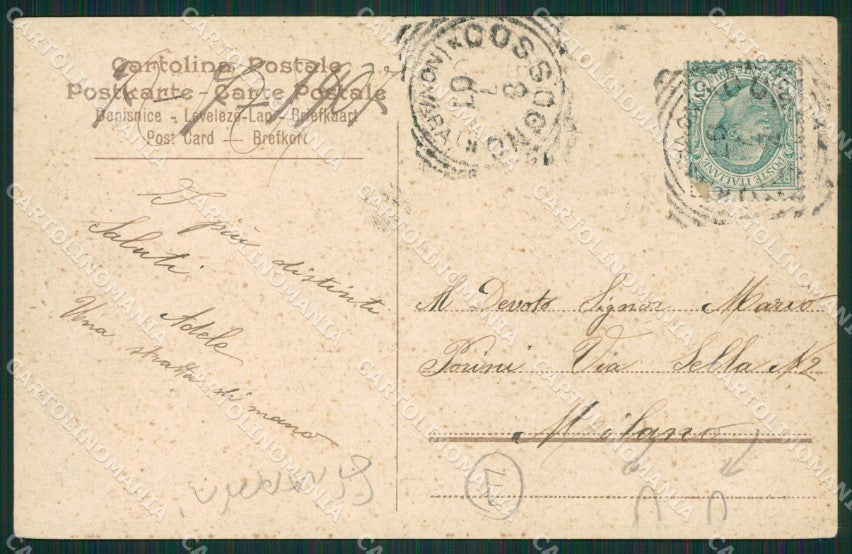 Cartolina Postale
Postkarte - Carte Postale
Dopisnice - Levelező-Lap - Briefkaart
Post Card — Brefkort
COSSOGNO
(NOVARA)
8
07
POSTE ITALIANE
I più distinti
Saluti
Adele
Una stretta di mano
Al Devoto Signor Mario
Porini Via Sella N 2
Milano
CARTOLINOMANIA